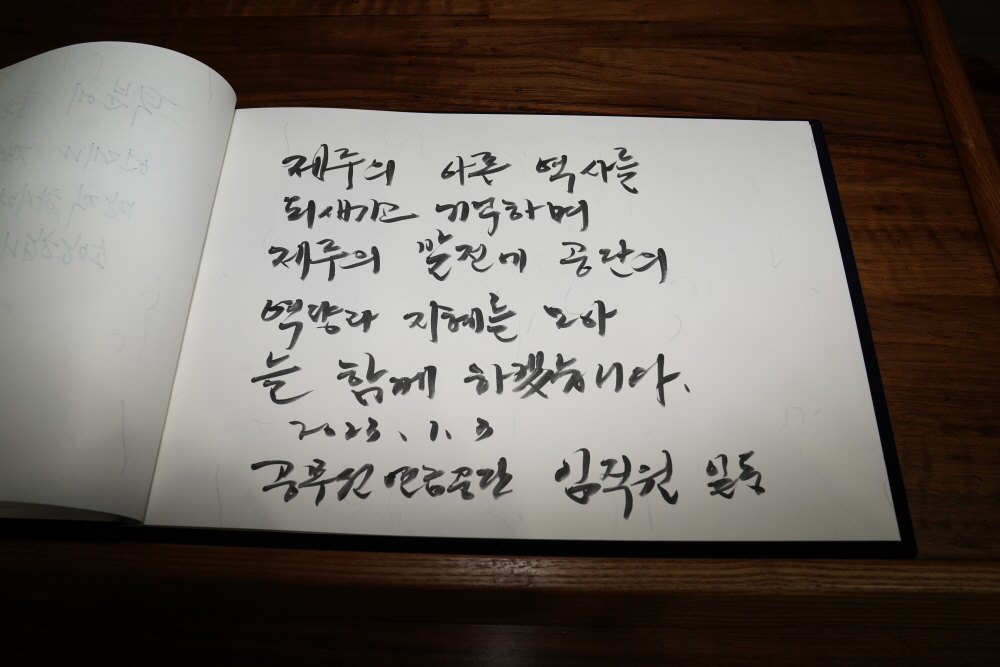 제주의 아픈 역사를
되새기고 기억하며
제주의 발전에 공단의
역량과 지혜를 모아
늘 함께 하겠습니다.
2023. 1. 3
공무원연금공단 임직원 일동